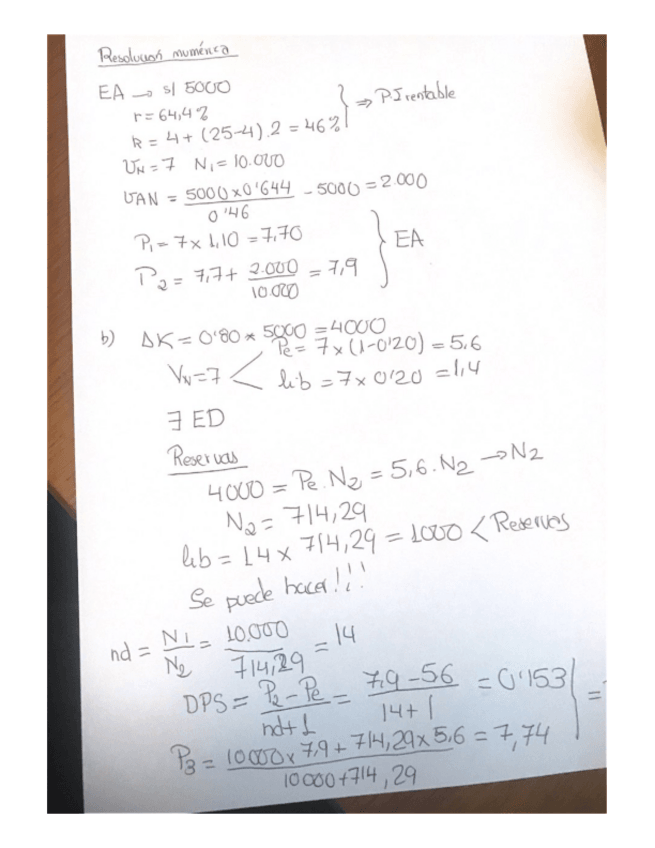 Resolución numérica
EA → s/ 5000
r = 64,4%
R = 4 + (25-4).2 = 46% } ⇒ PI rentable
VN = 7 N1 = 10.000
VAN = 5000 x 0'644 / 0'46 - 5000 = 2.000
P1 = 7 x 1,10 = 7,70
P2 = 7,7 + 2.000 / 10.000 = 7,9 } EA
b) ΔK = 0'80 * 5000 = 4000
VN = 7 < Pe = 7 x (1-0'20) = 5,6
lib = 7 x 0'20 = 1,4
∃ ED
Reservas
4000 = Pe . N2 = 5,6 . N2 → N2
N2 = 714,29
lib = 1.4 x 714,29 = 1000 < Reservas
Se puede hacer!!!
nd = N1 / N2 = 10.000 / 714,29 = 14
DPS = P2 - Pe / nd + 1 = 7,9 - 5,6 / 14 + 1 = 0'153
P3 = 10000 x 7,9 + 714,29 x 5,6 / 10000 + 714,29 = 7,74 } =